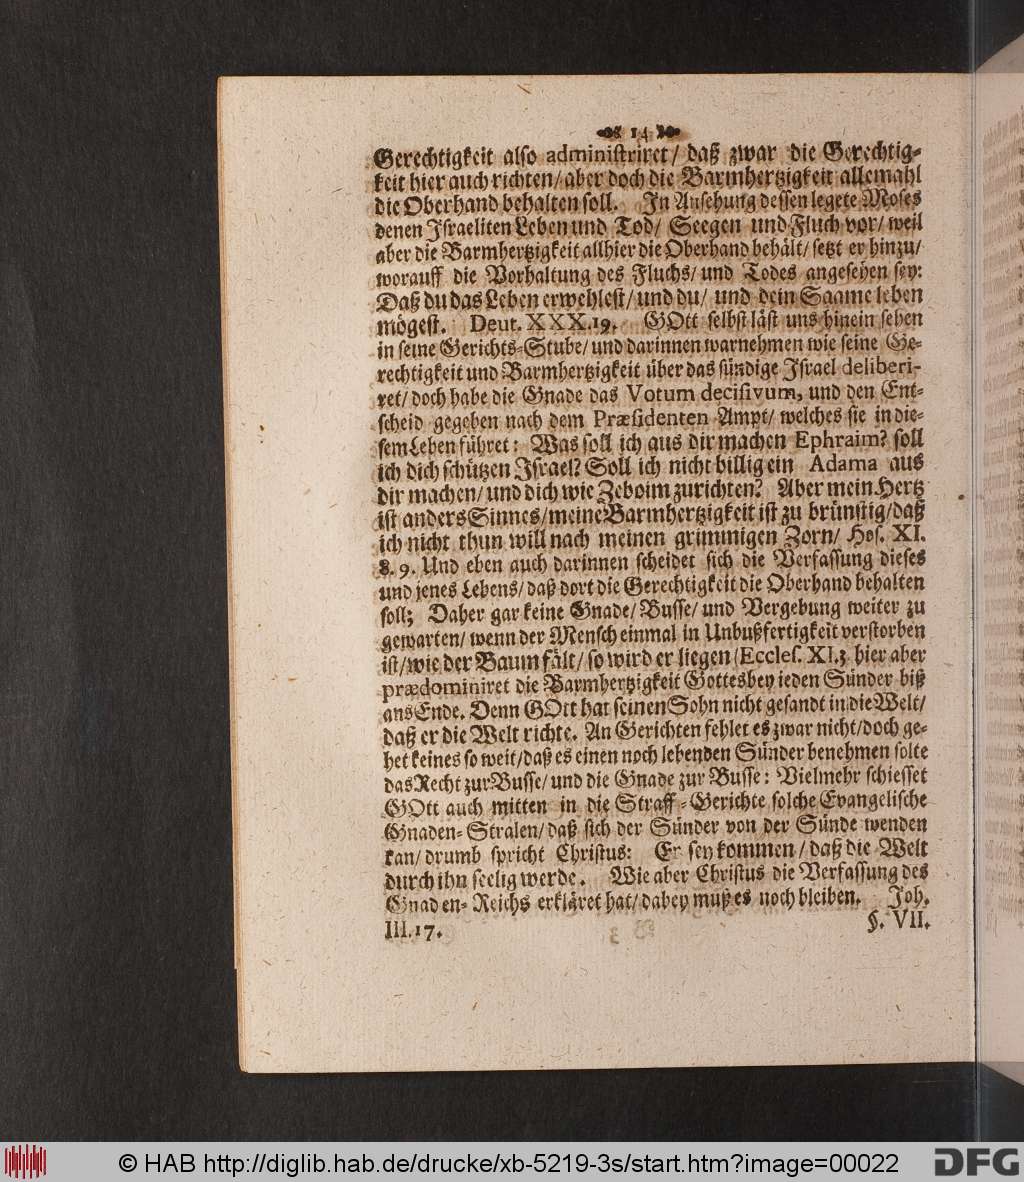 14
Gerechtigkeit also administriret/ daß zwar die Gerechtig-
keit hier auch richten/ aber doch die Barmhertzigkeit allemahl
die Oberhand behalten soll. In Ansehung dessen legete Moses
denen Israeliten Leben und Tod/ Seegen und Fluch vor/ weil
aber die Barmhertzigkeit allhier die Oberhand behält/ setzt er hinzu/
worauff die Vorhaltung des Fluchs/ und Todes angesehen sey:
Daß du das Leben erwehlest/ und du/ und dein Saame leben
mögest. Deut. XXX.19. GOtt selbst läst uns hinein sehen
in seine Gerichts-Stube/ und darinnen warnehmen wie seine Ge-
rechtigkeit und Barmhertzigkeit über das sündige Israel deliberi-
ret/ doch habe die Gnade das Votum decisivum, und den Ent-
scheid gegeben nach dem Præsidenten Ampt/ welches sie in die-
sem Leben führet: Was soll ich aus dir machen Ephraim? soll
ich dich schützen Israel? Soll ich nicht billig ein Adama aus
dir machen/ und dich wie Zeboim zurichten? Aber mein Hertz
ist anders Sinnes/ meine Barmhertzigkeit ist zu brünstig/ daß
ich nicht thun will nach meinen grimmigen Zorn/ Hos. XI.
8. 9. Und eben auch darinnen scheidet sich die Verfassung dieses
und jenes Lebens/ daß dort die Gerechtigkeit die Oberhand behalten
soll; Daher gar keine Gnade/ Busse/ und Vergebung weiter zu
gewarten/ wenn der Mensch einmal in Unbußfertigkeit verstorben
ist/ wie der Baum fält/ so wird er liegen (Eccles. XI.3 hier aber
prædominiret die Barmhertzigkeit Gottes bey ieden Sünder biß
ans Ende. Denn GOtt hat seinen Sohn nicht gesandt in die Welt/
daß er die Welt richte. An Gerichten fehlet es zwar nicht/ doch ge-
het keines so weit/ daß es einen noch lebenden Sünder benehmen solte
das Recht zur Busse/ und die Gnade zur Busse: Vielmehr schiesset
GOtt auch mitten in die Straff-Gerichte solche Evangelische
Gnaden-Stralen/ daß sich der Sünder von der Sünde wenden
kan/ drumb spricht Christus: Er sey kommen/ daß die Welt
durch ihn seelig werde. Wie aber Christus die Verfassung des
Gnaden-Reichs erkläret hat/ dabey muß es noch bleiben. Joh.
III.17. §. VII.
© HAB http://diglib.hab.de/drucke/xb-5219-3s/start.htm?image=00022
DFG